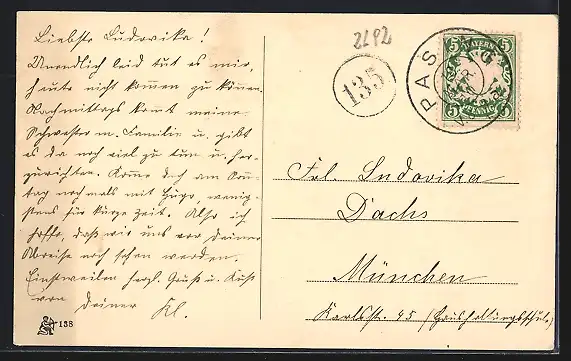 Liebste Ludovika!
Unendlich leid tut es mir,
heute nicht kommen zu können.
Nachmittags kommt meine
Schwester m. Familie u. gibt
es da noch viel zu tun u. her-
zurichten. Komme doch am Sonn-
tag nochmals mit Hugo, wenig-
stens für kurze Zeit. Also ich
hoffe, daß wir uns vor deiner
Abreise noch sehen werden.
Einstweilen herzl. Gruß u. Kuß
von deiner Kl.
138
2692
135
PASING
5 BAYERN 5
5 PFENNIG 5
Frl. Ludovika
Dachs
München
Karlstr. 45 (Haushaltungsschule.)